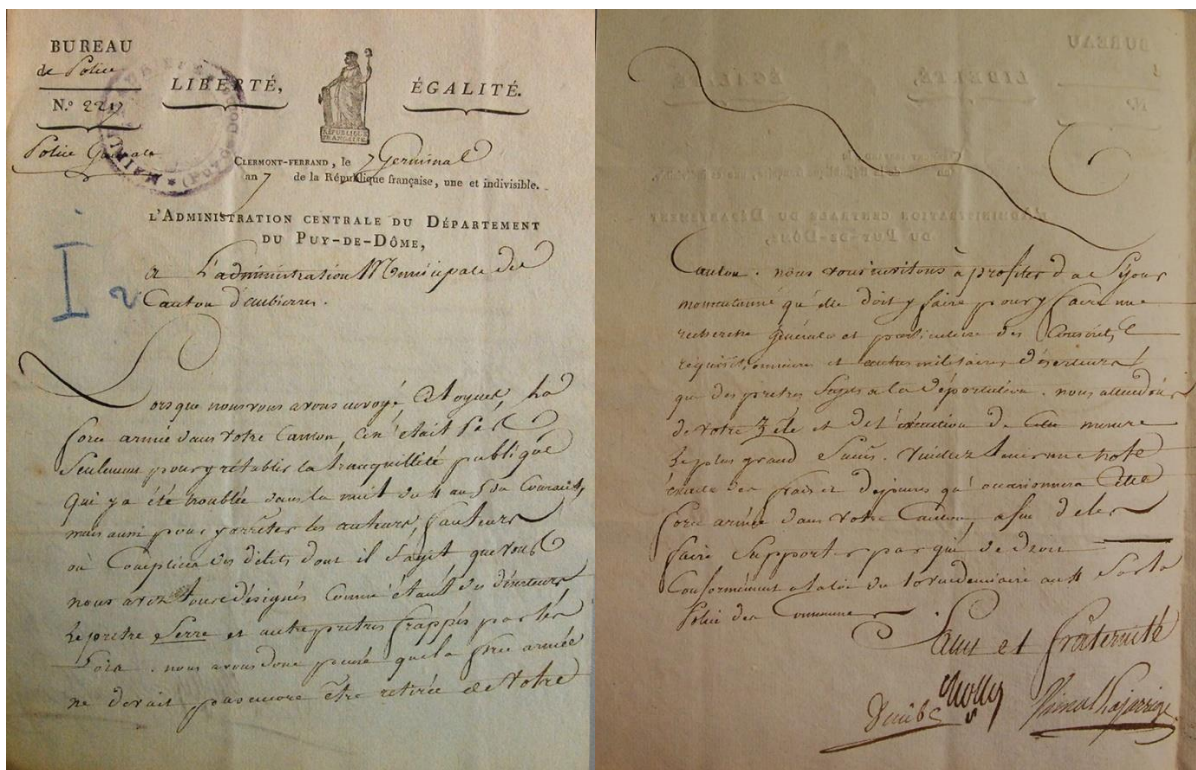 BUREAU
de Police
N.º 2217
Police Générale
LIBERTÉ,
ÉGALITÉ.
RÉPUBLIQUE
FRANÇAISE
CLERMONT-FERRAND, le 7 Germinal
an 7 de la République française, une et indivisible.
L'ADMINISTRATION CENTRALE DU DÉPARTEMENT
DU PUY-DE-DÔME,
a L'administration Municipale du
Canton d'aubierre.
Lorsque nous vous avons envoyé Citoyens, La
force armée dans votre Canton, ce n'était pas
Seulement pour y rétablir la tranquillité publique
qui y a été troublée dans la nuit du 4 au 5 du Courant,
mais aussi pour y arrêter les auteurs, fauteurs
où Complices des délits dont il s'agit que vous
nous avez tous désignés comme étant des déserteurs
Le pretre Serre et autre pretres frappés par les
Loix. nous avons donc pensé que la force armée
ne devait pas encore être retirée de Votre
Canton. nous vous invitons à profiter du Séjour
momentanné qu'elle doit y faire pour y faire une
recherche générale et particulière des Conscrits,
réquisitionnaire et autres militaires déserteurs
que des pretres Sujets a la déportation. nous attendons
de votre Zéle et de l'exécution de Cette mesure
Le plus grand Succès. Veuillez tenir une note
exacte des frais et dépenses qu'occasionnera Cette
force armée dans votre Canton, afin de les
faire Supporter par qui de droit
Conformément a la loi du 10 vendemiaire an 4 Sur la
Police des Communes.
Salut et fraternité